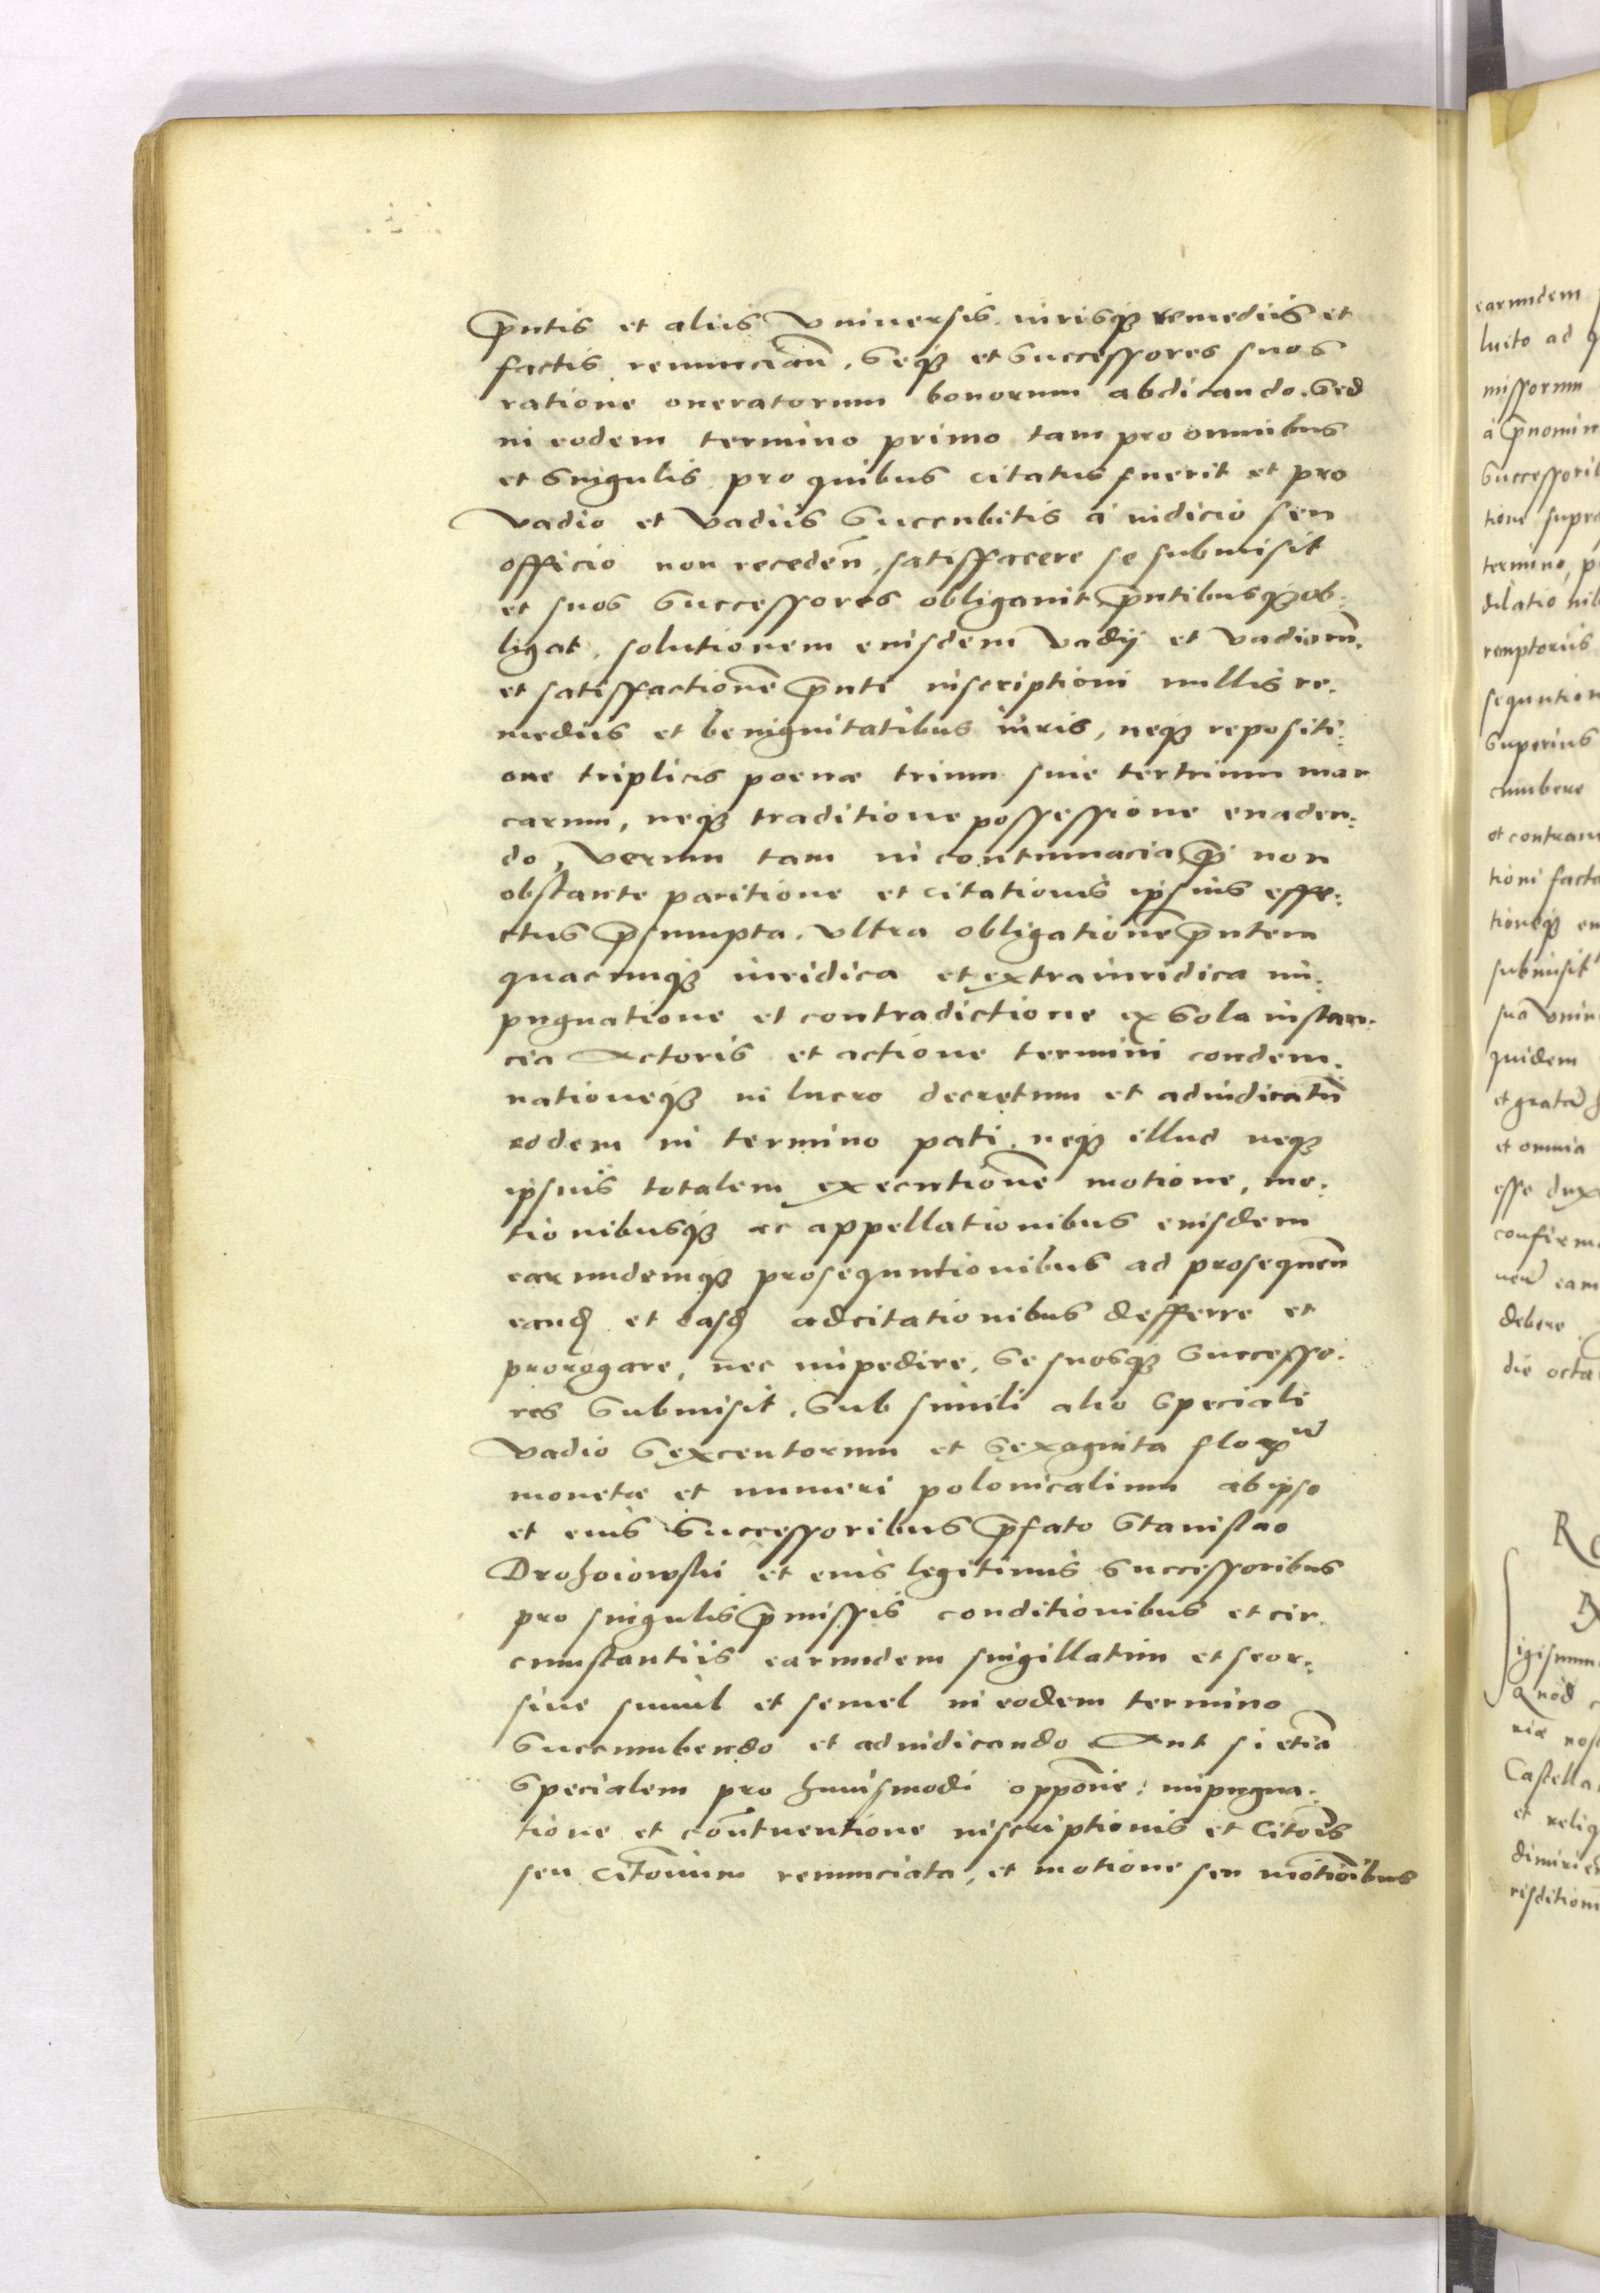 p̄ntis et aliis Vniuersis iurisq3 remediis et
factis renunciañ. Seq3 et Successores suos
ratione oneratorum bonorum abdicando. Sed
in eodem termino primo tam pro omnibus
et Singulis pro quibus citatus fuerit et pro
Vadio et Vadiis Succubitis a iudicio seu
officio non recedeñ, satisffacere se submisit
et suos Successores obligauit p̄ntibusq3 ob:
ligat, solutionem eiusdem Vadij et Vadiorū.
et satisffactionē p̄nti inscriptioni nullis re.
mediis et benignitatibus iuris, neq3 repositi:
one triplicis poenæ trium siue tertrium mar
carum, neq3 traditione possessione euaden:
do, Verum tam in contumacia q̄ non
obstante paritione et citationis ipsius effe:
ctus p̄sumpta. Vltra obligationē p̄ntem
quacumq3 iuridica et extraiuridica im:
pugnatione et contradictione ex Sola instan.
cia Actoris et actione termini condem.
nationeq3 in lucro decretum et adiudicatū
eodem in termino pati. neq3 illud neq3
ipsius totalem executionē motione, mo:
tionibusq3 ac appellationibus eiusdem
earundemq3 prosequutionibus ad prosequeñ
eand et easd adcitationibus defferre et
prorogare, nec impedire, Se suosq3 Successo.
res Submisit. Sub simili alio Speciali
Vadio Sexcentorum et Sexaginta flo
monetæ et numeri polonicalium ab ipso
et eius Successoribus p̄fato Stanislao
Drohoiowski et eius legitimis Successoribus
pro singulis p̄missis conditionibus et cir.
cumstantiis earundem singillatim et seor:
siue simul et semel in eodem termino
Succumbendo et adiudicando Aut si etiā
Specialem pro huiusmodi oppōne: impugna:
tione et cōntuentione inscriptionis et Citōis
seu Citōnum renunciata, et motione seu motiōibus
earundem
luito ad
missorum
a p̄nomin
Successorib
tione supra
termino, p
dilationib
remptoriis
sequution
Superius
cumbere
et contrau
tioni facta
tioneq3 eu
submisit
suā Vniu
quidem
et gratā
et omnia
esse dux
confirma
eam
debere
die octa
igismun
Quod
riæ nos
Castella
et reliq
risdition